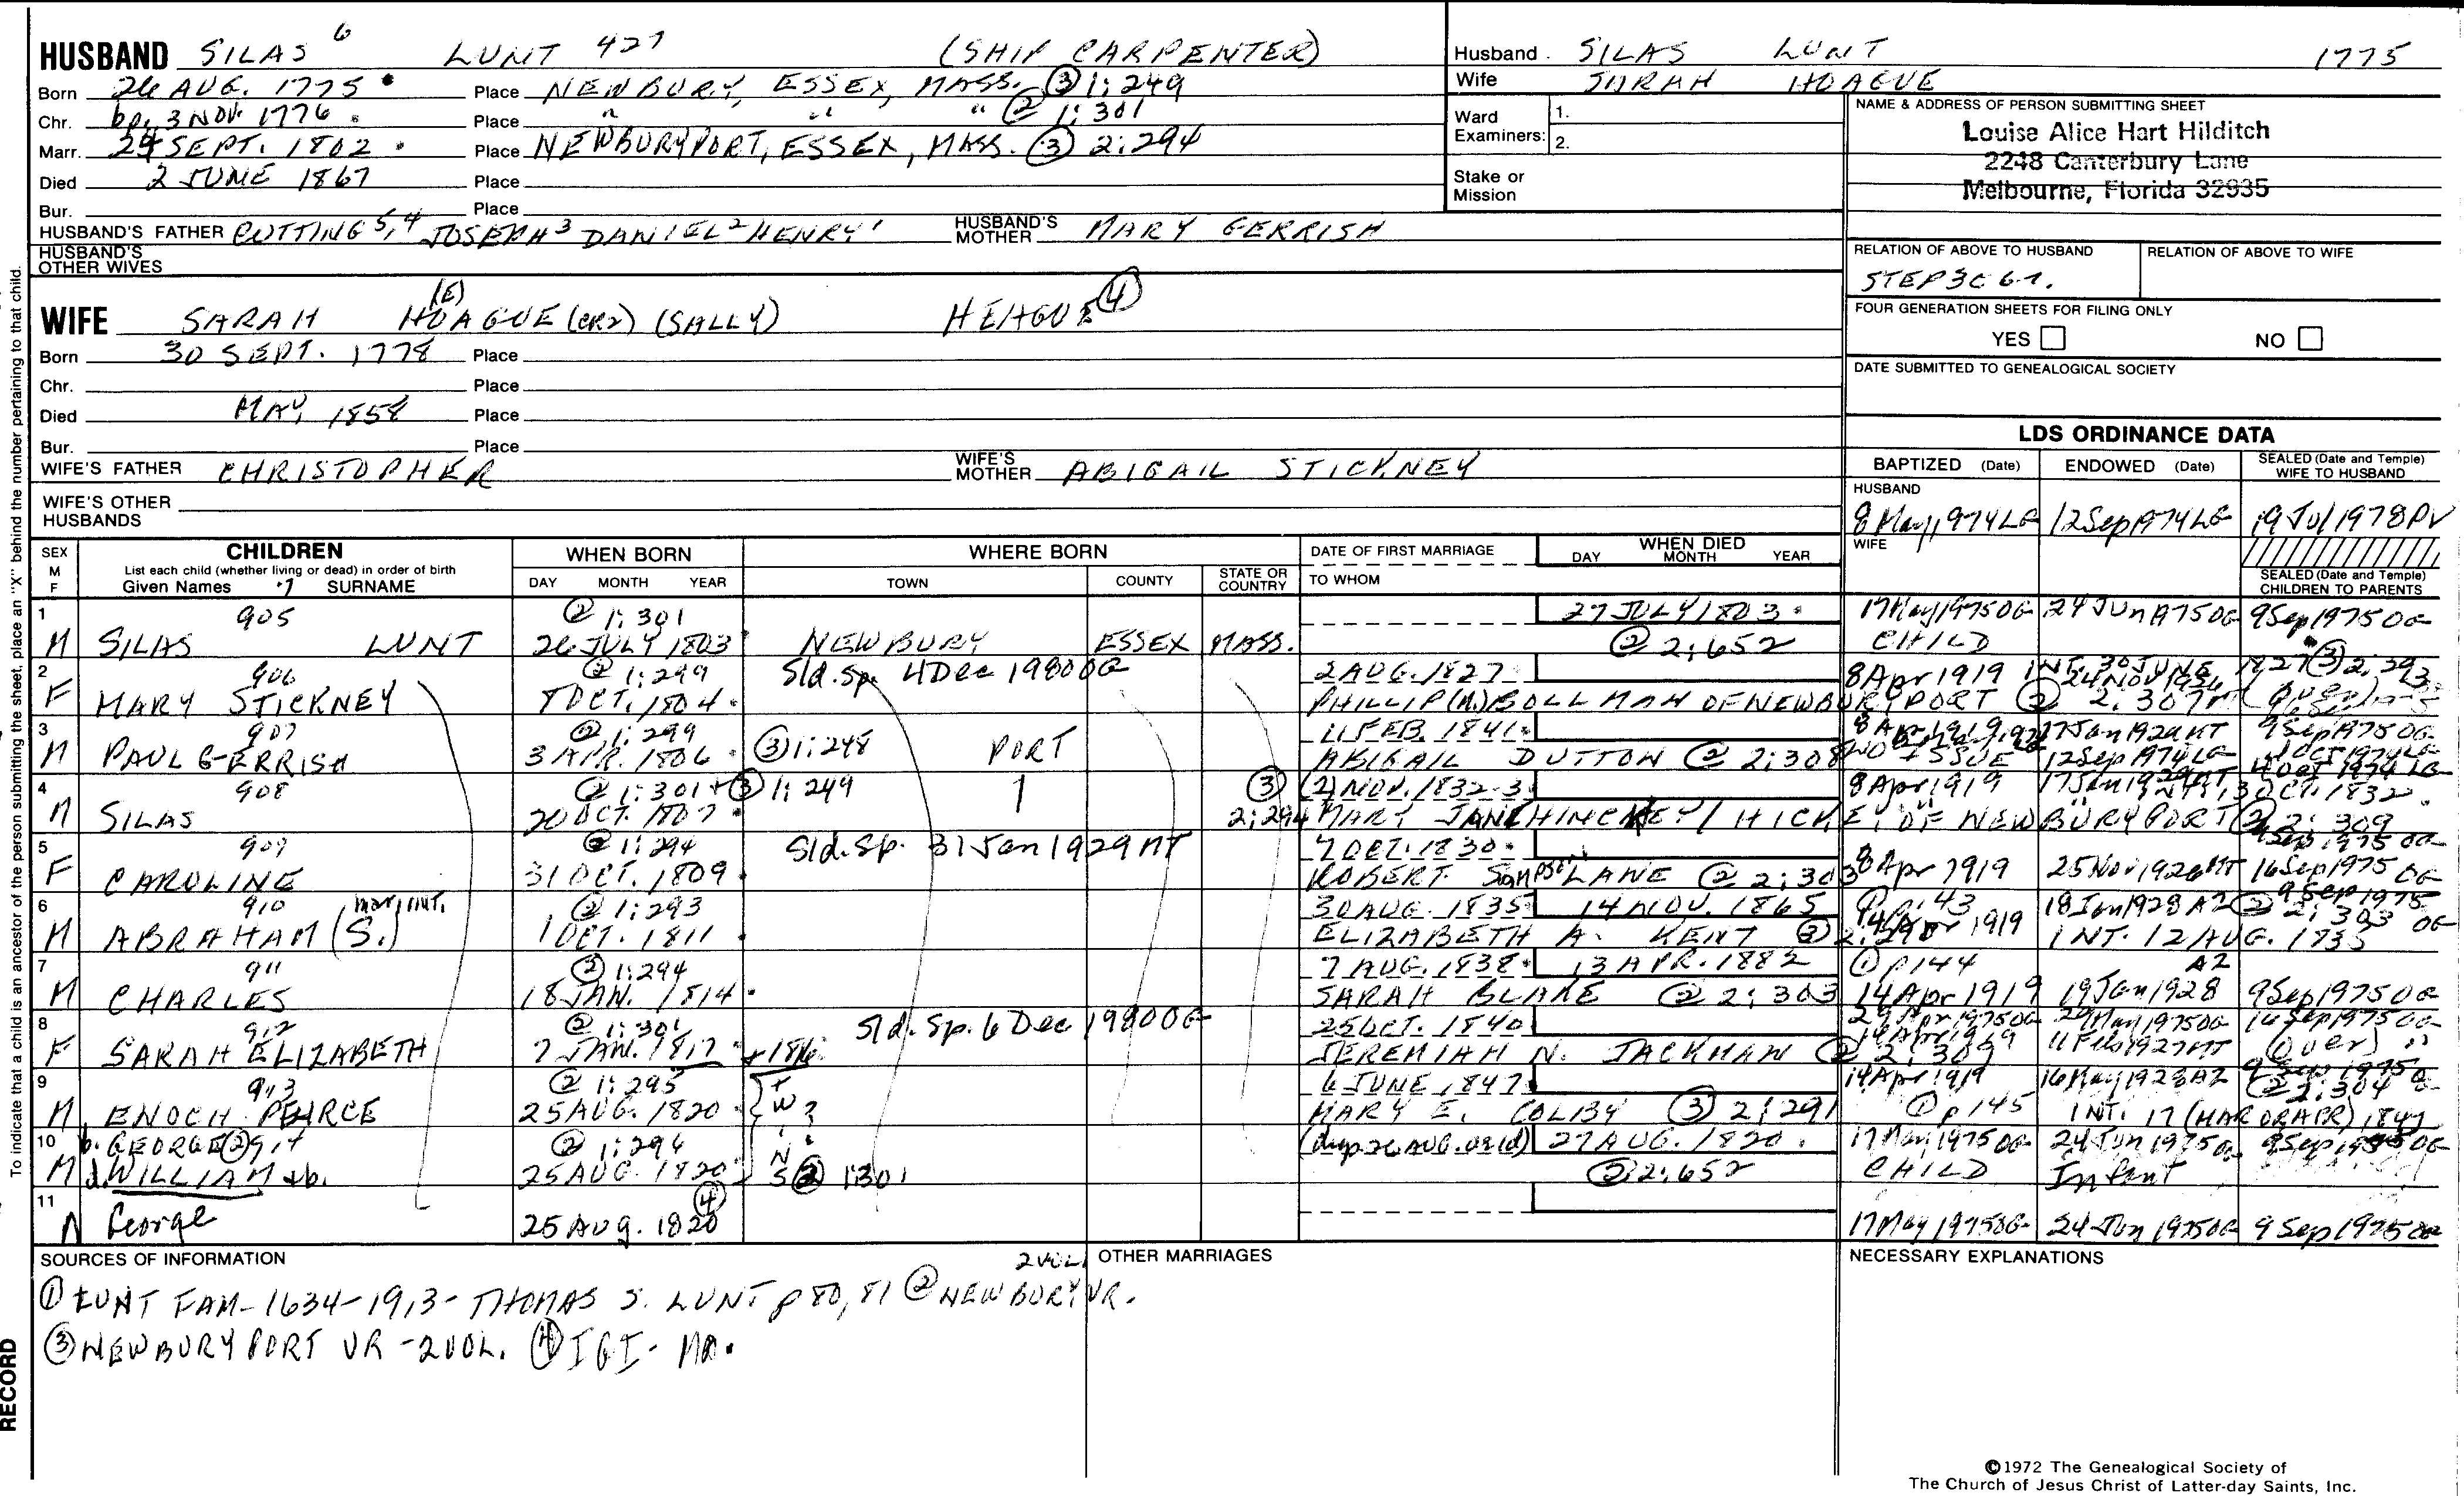 HUSBAND SILAS 6 LUNT 427 (SHIP CARPENTER)
Born 26 AUG. 1775 Place NEWBURY, ESSEX, MASS. (3) 1:249
Chr. bp. 3 NOV. 1776 Place " " " (2) 1:301
Marr. 29 SEPT. 1802 Place NEWBURYPORT, ESSEX, MASS. (3) 2:294
Died 2 JUNE 1867 Place
Bur. Place
HUSBAND'S FATHER CUTTING 5,4 JOSEPH 3 DANIEL 2 HENRY 1 HUSBAND'S MOTHER MARY GERRISH
HUSBAND'S OTHER WIVES
Husband SILAS LUNT 1775
Wife SARAH HOAGUE
Ward Examiners: 1.
2.
Stake or Mission
NAME & ADDRESS OF PERSON SUBMITTING SHEET
Louise Alice Hart Hilditch
2248 Canterbury Lane
Melbourne, Florida 32935
RELATION OF ABOVE TO HUSBAND RELATION OF ABOVE TO WIFE
STEP 3C 6-1.
FOUR GENERATION SHEETS FOR FILING ONLY
YES NO
DATE SUBMITTED TO GENEALOGICAL SOCIETY
WIFE SARAH HOAGUE (E) (CR2) (SALLY) HEAGUE (4)
Born 30 SEPT. 1778 Place
Chr. Place
Died MAY, 1858 Place
Bur. Place
WIFE'S FATHER CHRISTOPHER WIFE'S MOTHER ABIGAIL STICKNEY
WIFE'S OTHER HUSBANDS
LDS ORDINANCE DATA
BAPTIZED (Date) ENDOWED (Date) SEALED (Date and Temple) WIFE TO HUSBAND
HUSBAND
8 May 1974 LG 12 Sep 1974 LG 19 Jul 1978 PV
WIFE
SEALED (Date and Temple) CHILDREN TO PARENTS
SEX M F CHILDREN WHEN BORN WHERE BORN DATE OF FIRST MARRIAGE WHEN DIED
List each child (whether living or dead) in order of birth
Given Names 7 SURNAME DAY MONTH YEAR TOWN COUNTY STATE OR COUNTRY TO WHOM DAY MONTH YEAR
1 905 (2) 1:301 27 JULY 1803 17 May 1975 OG 24 Jun 1975 OG 9 Sep 1975 OG
M SILAS LUNT 26 JULY 1803 NEWBURY ESSEX MASS. (2) 2:652 CHILD
2 906 (2) 1:299 Sld. Sp. 4 Dec 1980 OG 2 AUG. 1827 8 Apr 1919 INT. 30 JUNE 1827 (3) 2:293
F MARY STICKNEY 7 OCT. 1804 PHILLIP (M.) BOLLMAN OF NEWBURYPORT (2) 2:307 (over)
3 907 (2) 1:299 (3) 1:248 PORT 11 FEB. 1841 17 Jan 1929 MT 9 Sep 1975 OG
M PAUL GERRISH 3 APR. 1806 ABIGAIL DUTTON (2) 2:308 NO ISSUE 12 Sep 1974 LG
4 908 (2) 1:301 + (3) 1:249 (3) 2:294 (2) NOV. 1832 8 Apr 1919 OCT. 1832.
M SILAS 20 OCT. 1807 MARY JANE HINCKEY / HICKEY, OF NEWBURYPORT (2) 2:309
5 909 (2) 1:294 Sld. Sp. 31 Jan 1929 MT 7 OCT. 1830 9 Sep 1975 OG
F CAROLINE 31 OCT. 1809 ROBERT Sampson LANE (2) 2:303 8 Apr 1919 25 Nov 1926 MT 16 Sep 1975 OG
6 910 mar. int. (2) 1:293 30 AUG. 1835 14 NOV. 1865 (1) p. 143 18 Jan 1928 AZ 9 Sep 1975 OG (2) 2:303
M ABRAHAM (S.) 1 OCT. 1811 ELIZABETH A. KENT (3) 2:290 14 Apr 1919 INT. 12 AUG. 1835
7 911 (2) 1:294 7 AUG. 1838 13 APR. 1882 (1) p 144 AZ
M CHARLES 18 JAN. 1814 SARAH BLAKE (2) 2:303 14 Apr 1919 19 Jan 1928 9 Sep 1975 OG
8 912 (2) 1:301 Sld. Sp. 6 Dec 1980 OG 25 OCT. 1840 29 Apr 1975 OG 29 May 1975 OG 16 Sep 1975 OG
F SARAH ELIZABETH 7 JAN. 1817 + 1816 JEREMIAH N. JACKMAN (2) 2:309 14 Apr 1919 11 Feb 1927 MT (over)
9 913 (2) 1:295 6 JUNE 1847 14 Apr 1919 16 May 1928 AZ 9 Sep 1975 OG (2) 2:304
M ENOCH PEARCE 25 AUG. 1820 TWINS MARY E. COLBY (3) 2:291 (1) p 145 INT. 17 (MAR OR APR) 1847
10 b. GEORGE (2) 914 (2) 1:294 (dup. 26 AUG. ae 1d) 27 AUG. 1820 17 May 1975 OG 24 Jun 1975 OG 9 Sep 1975 OG
M d. WILLIAM + b. 25 AUG. 1820 (2) 1:301 (2) 2:652 CHILD Infant
11 (4)
M George 25 Aug. 1820 17 May 1975 OG 24 Jun 1975 OG 9 Sep 1975 OG
SOURCES OF INFORMATION OTHER MARRIAGES NECESSARY EXPLANATIONS
(1) LUNT FAM - 1634-1913 - THOMAS S. LUNT p 80, 81 (2) NEWBURY VR. 2 VOL
(3) NEWBURYPORT VR - 2 VOL. (4) IGI - MA.
To indicate that a child is an ancestor of the person submitting the sheet, place an "X" behind the number pertaining to that child.
RECORD
©1972 The Genealogical Society of
The Church of Jesus Christ of Latter-day Saints, Inc.